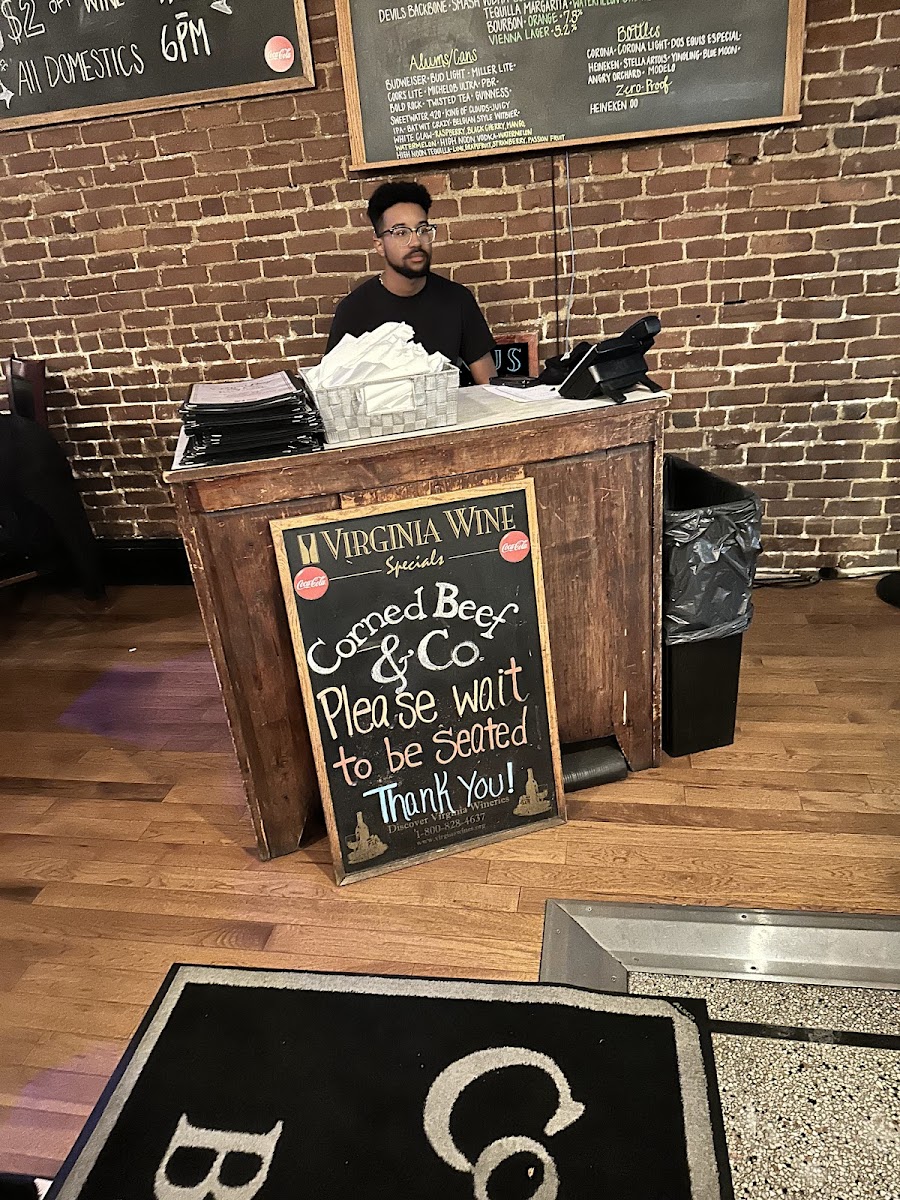 $2 OFF WINE
All DOMESTICS
6PM
Coca-Cola
DEVILS BACKBONE · SMASH VODKA
TEQUILLA MARGARITA · WATERMELON
BOURBON · ORANGE · 7.5%
VIENNA LAGER · 5.2%
Alums/Cans
BUDWEISER · BUD LIGHT · MILLER LITE ·
COORS LITE · MICHELOB ULTRA · PBR ·
BOLD ROCK · TWISTED TEA · GUINNESS ·
SWEETWATER 420 · KING OF CLOUDS · JUICY
IPA · BATWIT CRAZY · BELGIAN STYLE WITBIER ·
WHITE CLAW · RASPBERRY, BLACK CHERRY, MANGO
WATERMELON · HIGH NOON VODKA · WATERMELON
HIGH NOON TEQUILLA · LIME, GRAPEFRUIT, STRAWBERRY, PASSION FRUIT
Bottles
CORONA · CORONA LIGHT · DOS EQUIS ESPECIAL ·
HEINEKEN · STELLA ARTOIS · YINGLING · BLUE MOON ·
ANGRY ORCHARD · MODELO
Zero-Proof
HEINEKEN 00
US
VIRGINIA WINE
Specials
Coca-Cola
Coca-Cola
Corned Beef
& Co.
Please wait
to be Seated
Thank You!
Discover Virginia Wineries
1-800-828-4637
www.virginiawines.org
Co
B